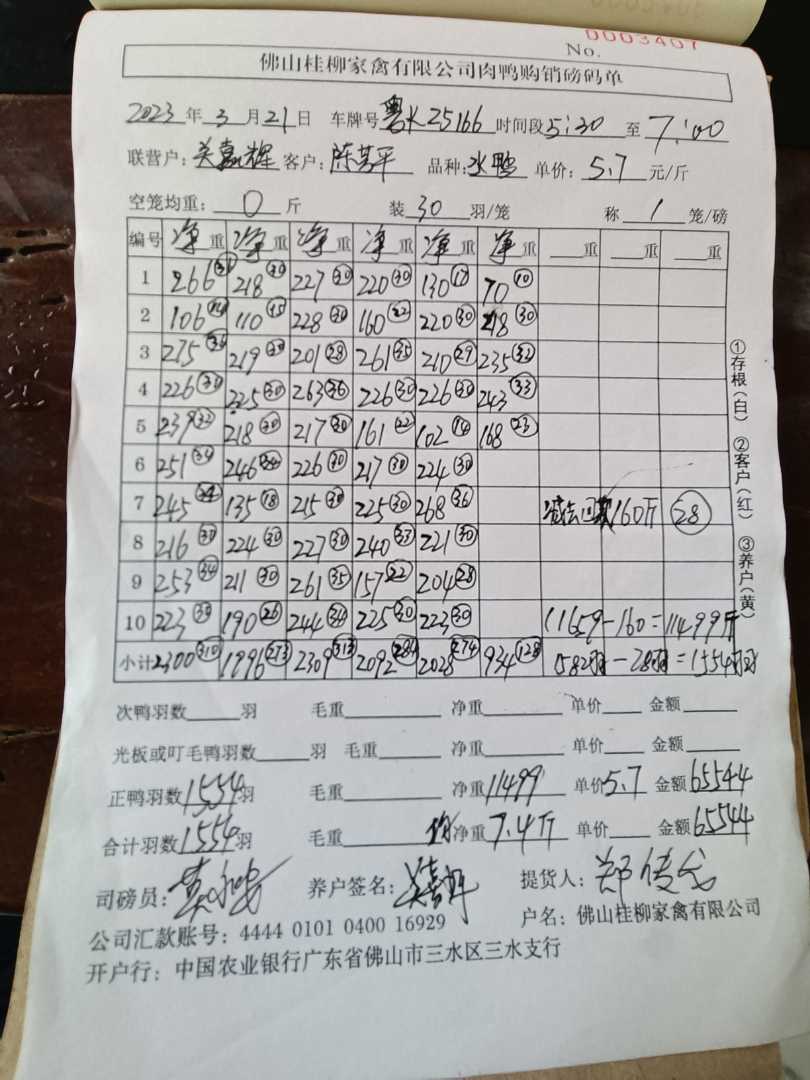 0003407
No.
佛山桂柳家禽有限公司肉鸭购销磅码单
2023 年 3 月 21 日 车牌号 粤K25166 时间段 5:30 至 7:00
联营户: 关嘉辉 客户: 陈芳平 品种: 水鸭 单价: 5.7 元/斤
空笼均重: 0 斤 装 30 羽/笼 称 1 笼/磅
编号 净重 净重 净重 净重 净重 净重 重 重 重
1 266 218 (30) 227 (30) 220 (30) 130 (17) 70 (10)
2 106 (14) 110 (15) 228 (30) 160 (22) 220 (30) 218 (30)
3 275 (36) 219 (30) 201 (28) 261 (35) 210 (29) 235 (32)
4 226 (30) 225 (30) 263 (36) 226 (30) 226 (30) 243 (33)
5 239 (32) 218 (30) 217 (30) 161 (22) 102 (14) 168 (23)
6 251 (34) 246 (34) 226 (30) 217 (30) 224 (30)
7 245 135 (18) 215 (30) 225 (30) 268 (36) 减去回款 160斤 (28)
8 216 (30) 224 (30) 227 (30) 240 (33) 221 (30)
9 253 (34) 211 (30) 261 (35) 157 (22) 204 (28)
10 223 (30) 190 (26) 244 (34) 225 (30) 223 (30) 11659-160=11499斤
小计 2300 (310) 1996 (273) 2309 (313) 2092 (284) 2028 (274) 934 (128) 1582羽-28羽=1554羽
次鸭羽数 羽 毛重 净重 单价 金额
光板或叮毛鸭羽数 羽 毛重 净重 单价 金额
正鸭羽数 1554 羽 毛重 净重 11499 单价 5.7 金额 65544
合计羽数 1554 羽 毛重 均净重 7.4斤 单价 金额 65544
司磅员: 养户签名: 关嘉辉 提货人: 郑传戈
公司汇款账号: 4444 0101 0400 16929 户名: 佛山桂柳家禽有限公司
开户行: 中国农业银行广东省佛山市三水区三水支行
①存根(白) ②客户(红) ③养户(黄)